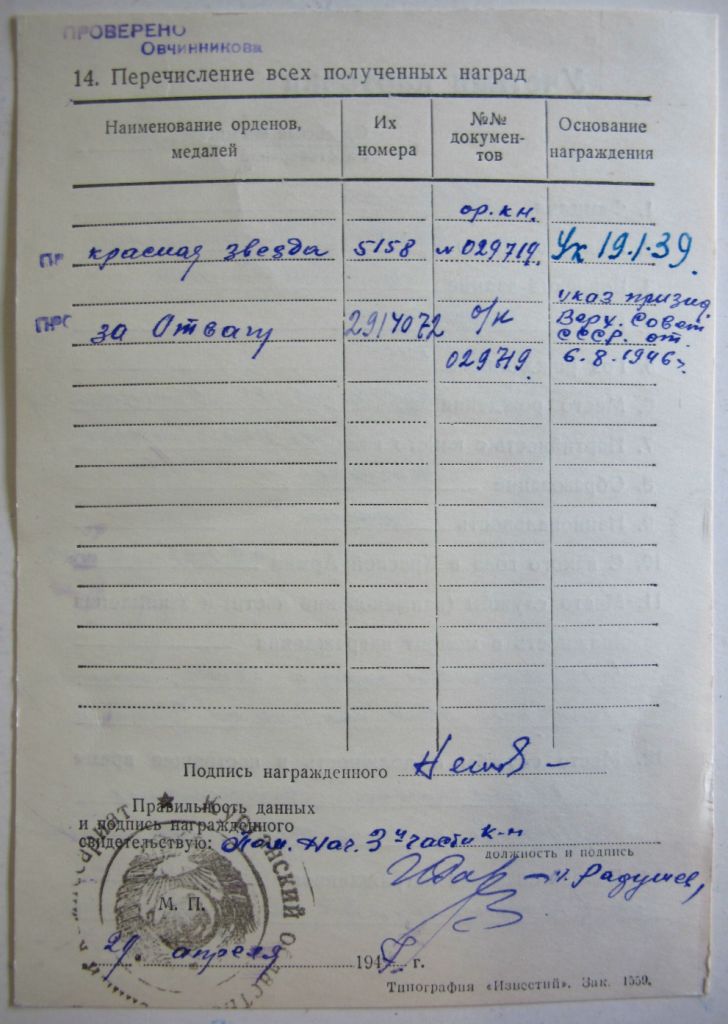 ПРОВЕРЕНО
Овчинникова
14. Перечисление всех полученных наград
Наименование орденов, медалей
Их номера
№№ документов
Основание награждения
ор. кн.
ПР красная звезда 5158 № 029719. Ук 19.1.39.
указ призид.
ПРО за Отвагу 2914072 о/к Верх. Совет
СССР. от.
029719. 6.8.1946 г.
Подпись награжденного
Правильность данных
и подпись награжденного
свидетельствую: Пом. Нач. 3 й части к-н
должность и подпись
М. П.
29. апреля 194 г.
Типография «Известий». Зак. 1559.